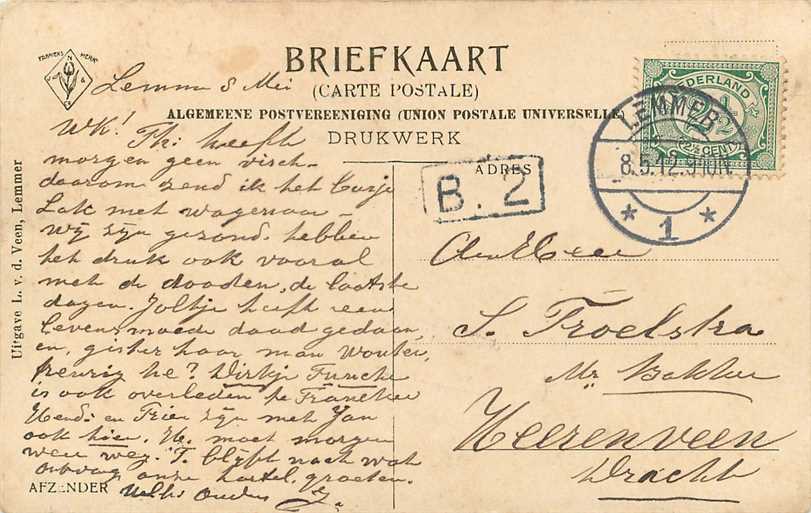 FABRIEKS MERK
BRIEFKAART
(CARTE POSTALE)
ALGEMEENE POSTVEREENIGING (UNION POSTALE UNIVERSELLE)
DRUKWERK
ADRES
NEDERLAND
2½
2½ CENT
LEMMER
8.5.12.9-10N
* 1 *
B. 2
Uitgave L. v. d. Veen, Lemmer
Lemmer 8 Mei
WK! Th: heeft
morgen geen visch
daarom zend ik het
Lak met wagenaar
Wij zijn gezond. hebben
het druk ook vooral
met de dooden, de laatste
dagen. Joltje heeft een
levensmoede daad gedaan,
en, gister haar man Wouter,
treurig he? Dirkje
is ook overleden te Franeker
en zijn met Jan
ook hier. moet morgen
weer weg. T. blijft noch wat
onze hartel. groeten.
Ouders
AFZENDER
Den Heer
S. Troelstra
Mr Bakker
Heerenveen
Dracht